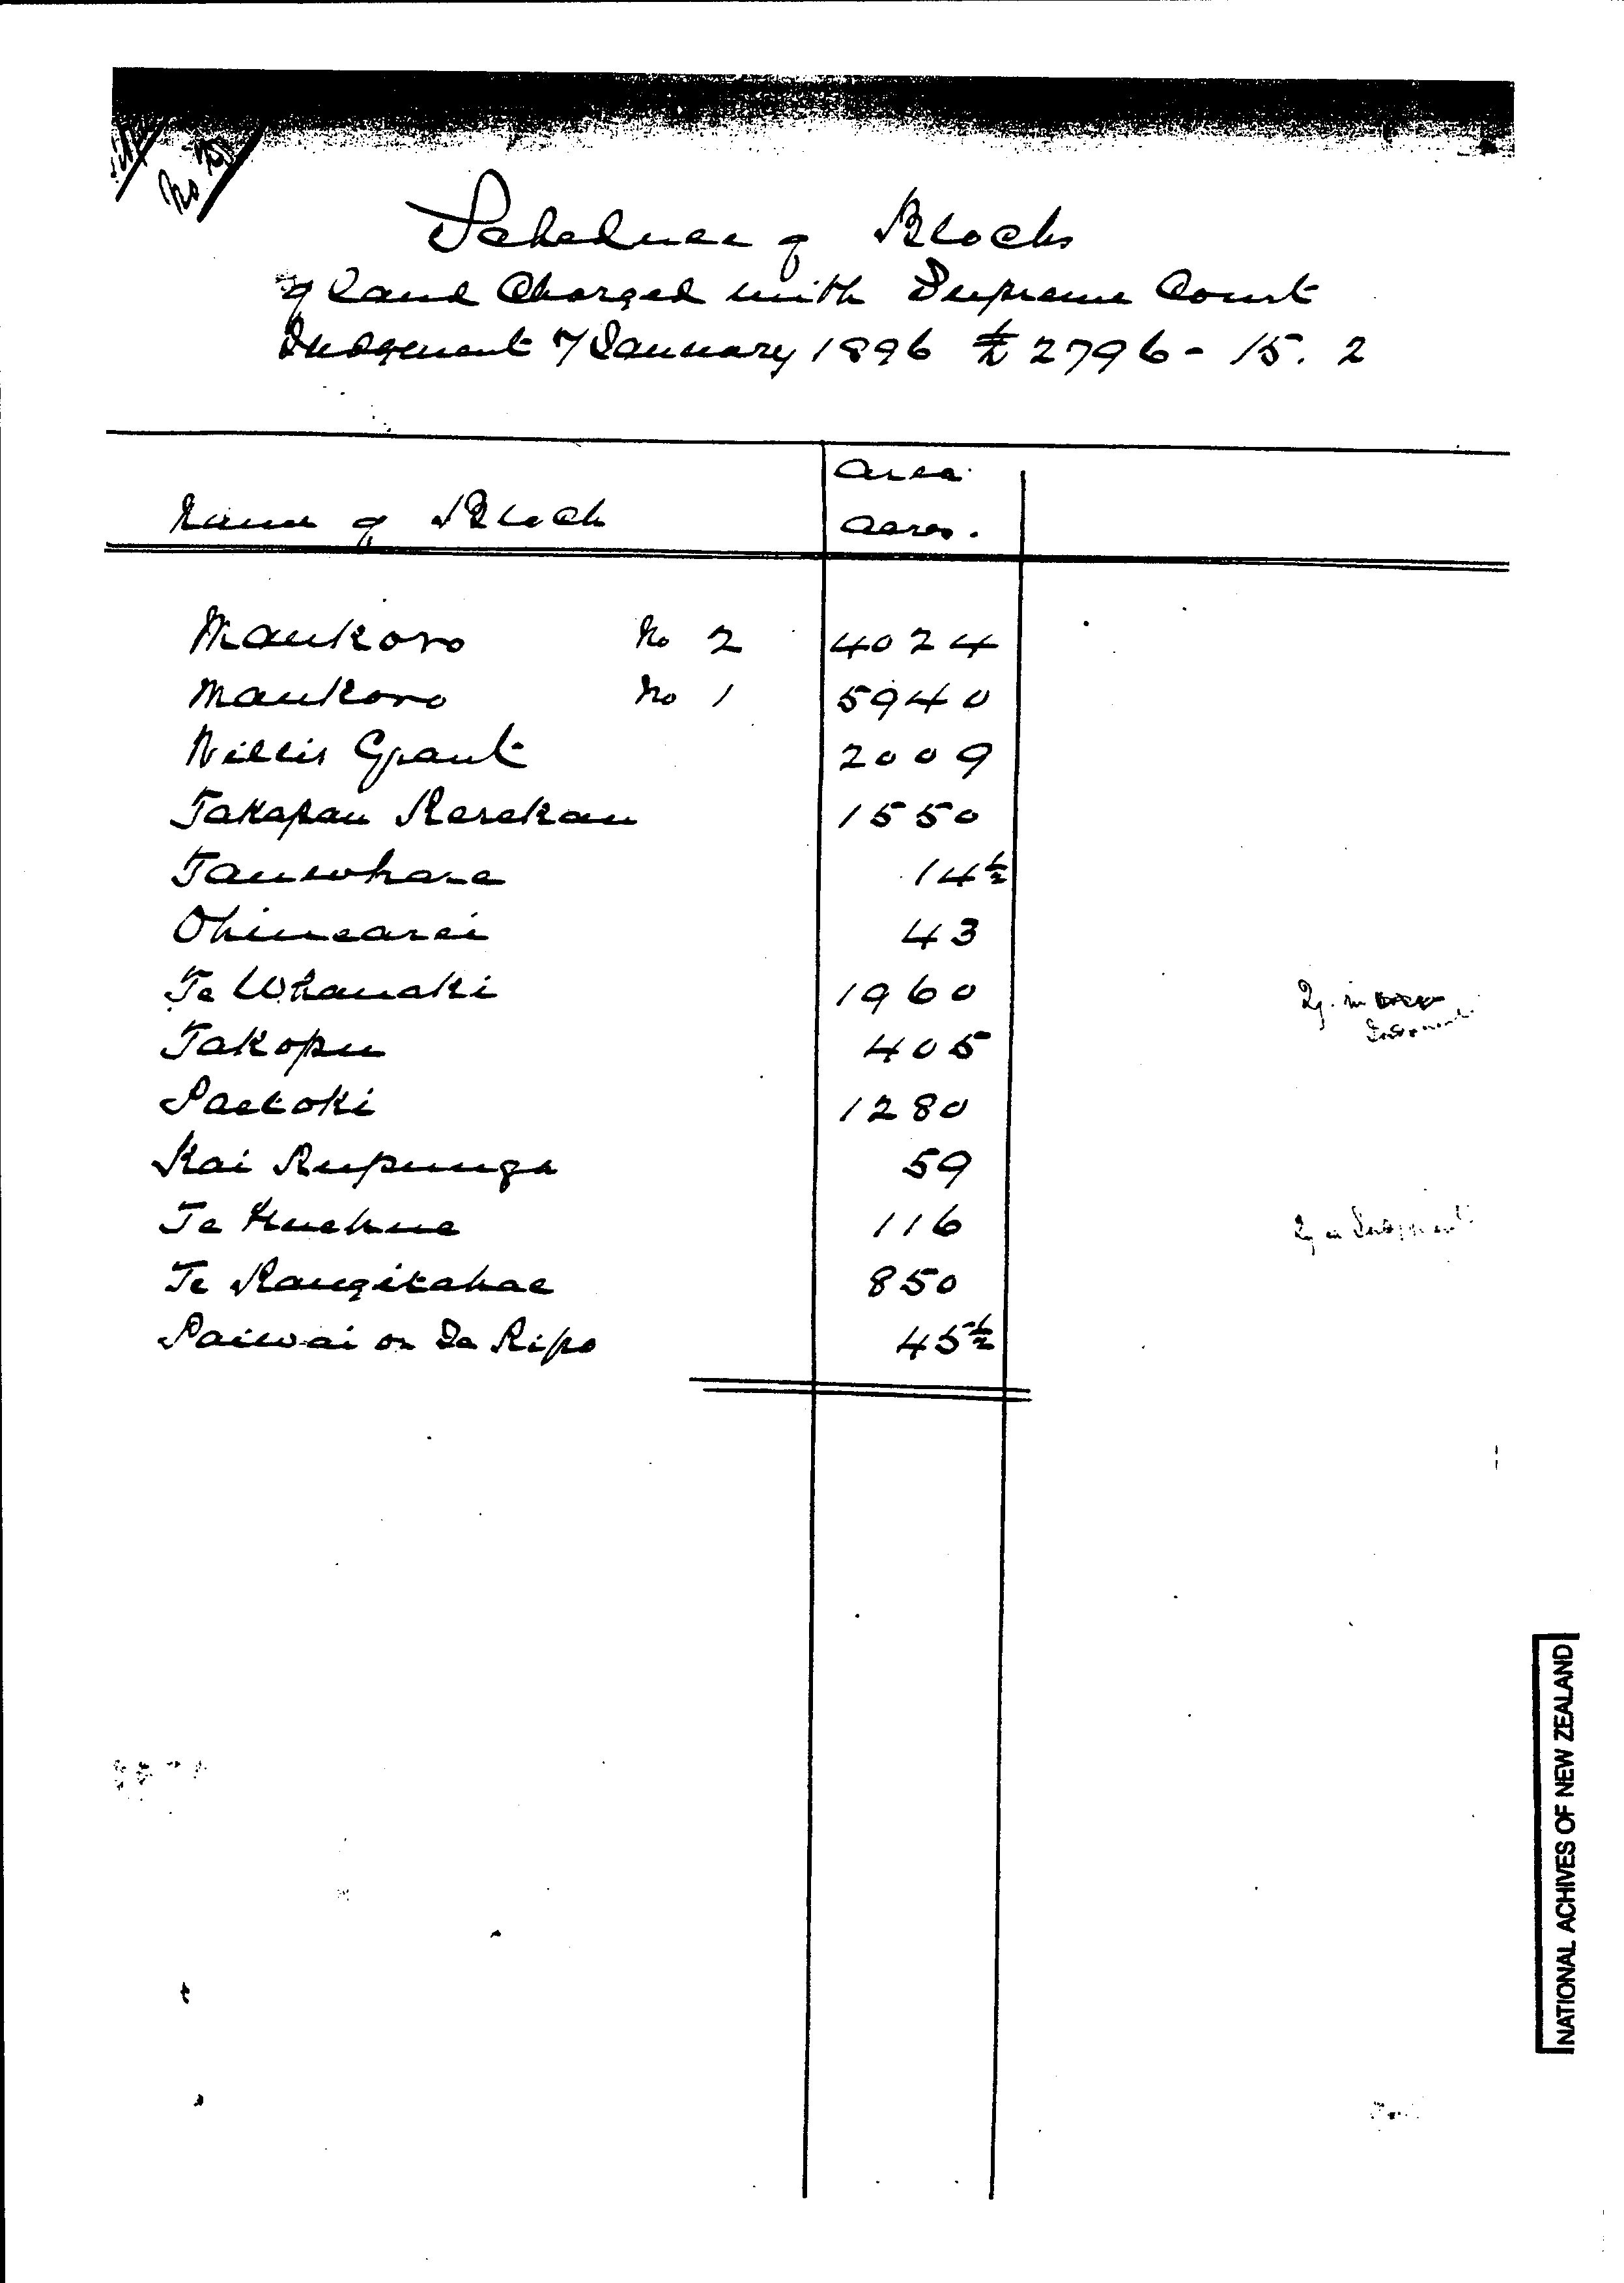 Schedule of Blocks
of Land Charged with Supreme Court
Judgement 7 January 1896 £ 2796 - 15. 2
Name of Block
Area
Acres.
Maukoro No 2 4024
Maukoro No 1 5940
Willis Grant 2009
Takapau Kerekau 1550
Tauwhare 14½
Ohinearei 43
Te Whanaki 1960
Takopu 405
Paetoki 1280
Kai Rupunga 59
Te Huehue 116
Te Rangitahae 850
Paiwai or Te Ripo 45½
NATIONAL ACHIVES OF NEW ZEALAND